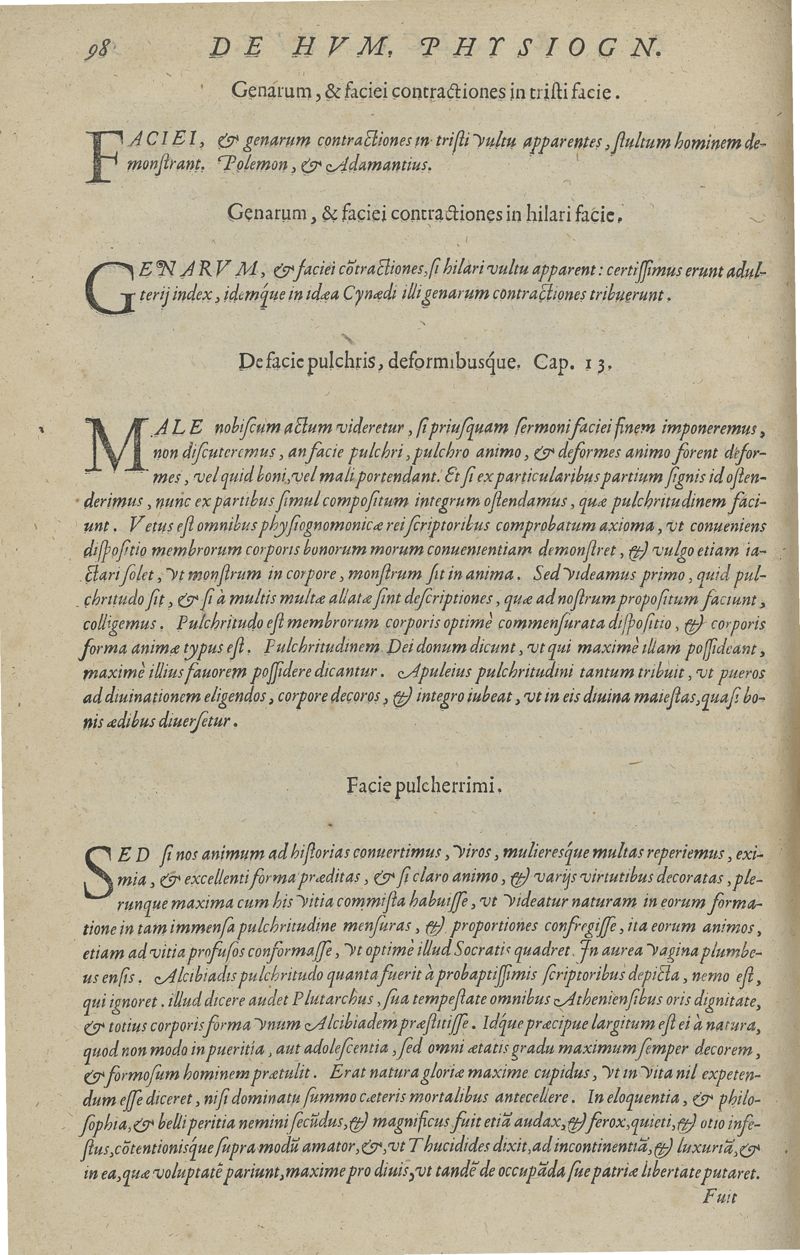 98 DE HVM. PHYSIOGN.
Genarum, & faciei contractiones in tristi facie.
FACIEI, & genarum contractiones in tristi vultu apparentes, stultum hominem de-
monstrant. Polemon, & Adamantius.
Genarum, & faciei contractiones in hilari facie.
GENARVM, & faciei cõtractiones, si hilari vultu apparent: certissimus erunt adul-
terij index, idemq́ue in idæa Cynædi illi genarum contractiones tribuerunt.
De facie pulchris, deformibusq́ue. Cap. 13.
MALE nobiscum actum videretur, si priusquam sermoni faciei finem imponeremus,
non discuteremus, an facie pulchri, pulchro animo, & deformes animo forent defor-
mes, vel quid boni, vel mali portendant. Et si ex particularibus partium signis id osten-
derimus, nunc ex partibus simul compositum integrum ostendamus, quæ pulchritudinem faci-
unt. Vetus est omnibus physiognomonicæ rei scriptoribus comprobatum axioma, vt conueniens
dispositio membrorum corporis bonorum morum conuenientiam demonstret, & vulgo etiam ia-
ctari solet, vt monstrum in corpore, monstrum sit in anima. Sed videamus primo, quid pul-
chritudo sit, & si à multis multæ allatæ sint descriptiones, quæ ad nostrum propositum faciunt,
colligemus. Pulchritudo est membrorum corporis optimè commensurata dispositio, & corporis
forma animæ typus est. Pulchritudinem Dei donum dicunt, vt qui maximè illam possideant,
maximè illius fauorem possidere dicantur. Apuleius pulchritudini tantum tribuit, vt pueros
ad diuinationem eligendos, corpore decoros, & integro iubeat, vt in eis diuina maiestas, quasi bo-
nis ædibus diuersetur.
Facie pulcherrimi.
SED si nos animum ad historias conuertimus, viros, mulieresq́ue multas reperiemus, exi-
mia, & excellenti forma præditas, & si claro animo, & varijs virtutibus decoratas, ple-
runque maxima cum his vitia commista habuisse, vt videatur naturam in eorum forma-
tione in tam immensa pulchritudine mensuras, & proportiones confregisse, ita eorum animos,
etiam ad vitia profusos conformasse, vt optimè illud Socratis quadret. In aurea vagina plumbe-
us ensis. Alcibiadis pulchritudo quanta fuerit à probaptissimis scriptoribus depicta, nemo est,
qui ignoret. illud dicere audet Plutarchus, sua tempestate omnibus Atheniensibus oris dignitate,
& totius corporis forma vnum Alcibiadem præstitisse. Idq́ue præcipue largitum est ei à natura,
quod non modo in pueritia, aut adolescentia, sed omni ætatis gradu maximum semper decorem,
& formosum hominem prætulit. Erat natura gloriæ maxime cupidus, vt in vita nil expeten-
dum esse diceret, nisi dominatu summo cæteris mortalibus antecellere. In eloquentia, & philo-
sophia, & belli peritia nemini secũdus, & magnificus fuit etiã audax, & ferox, quieti, & otio infe-
stus, cõtentionisq́ue supra modũ amator, &, vt Thucidides dixit, ad incontinentiã, & luxuriã, &
in ea, quæ voluptatẽ pariunt, maxime pro diuis, vt tandẽ de occupãda suæ patriæ libertate putaret.
Fuit